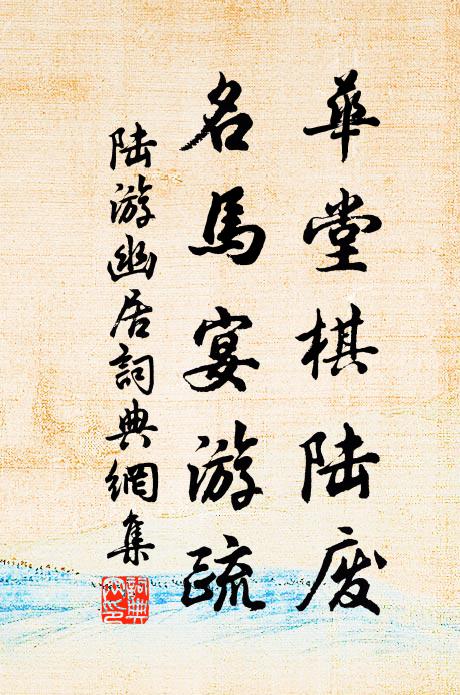 華堂棋陆废
名馬宴游疏
陆游幽居詞典網集